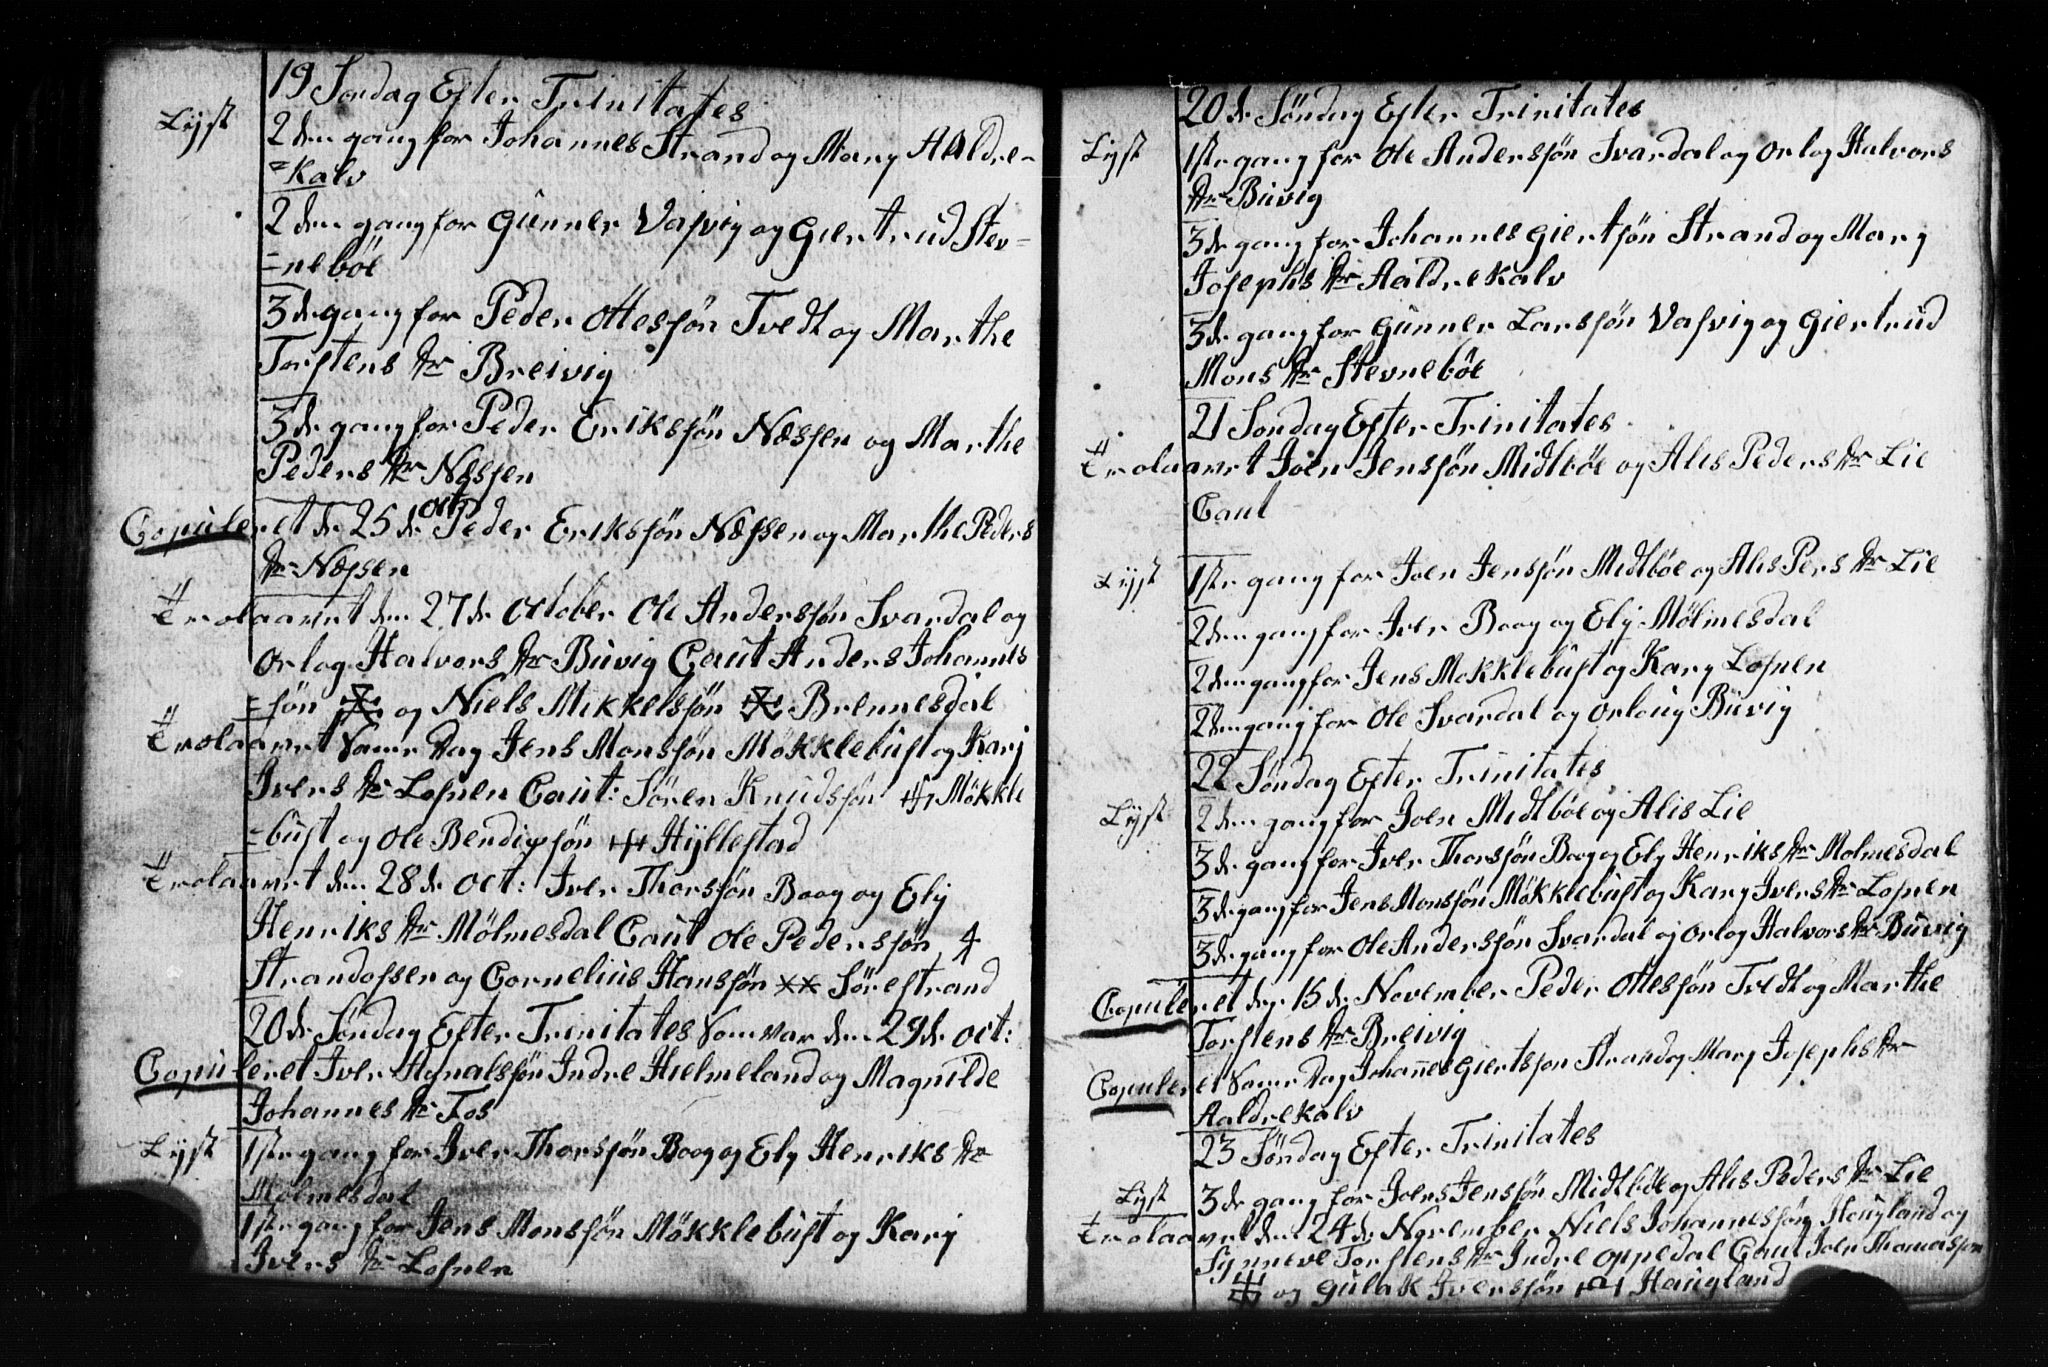 19 Søndag Efter Trinitates
Lyst 2den gang for Johannes Strand og Mary Aaldre-
=kalv
2den gang for Gunner Vasvig og Giertrud Stev=
=nebøe
3de gang for Peder Ottessøn Tvedt og Marthe
Torstens dr Breivig
3de gang for Peder Erikssøn Næssen og Marthe
Peders dr Næssen
Copuleret de 25de oct Peder Erikssøn Næssen og Marthe Peders
dr Næssen
Trolaavet den 27de October Ole Anderssøn Svardal og
Orlog Halvors dr Buvig Caut Anders Johannes
=søn og Niels Mikkelsøn Brennesdal
Trolaavet Same Dag Jens Monssøn Møkklebust og Karj
Ivers dr Losnen Caut: Søren Knudssøn Møkkle
=bust og Ole Bendixsøn Hyllestad
Trolaavet den 28de Oct: Iver Thorssøn Boog og Elj
Henriks dr Mølmesdal Caut Ole Pederssøn
Strandossen og Cornelius Hanssøn Sørestrand
20de Søndag Efter Trinitates Som var den 29de oct:
Copuleret Iver Agnalssøn Indre Hielmeland og Magnilde
Johannes dr Fos
Lyst 1ste gang for Iver Thorssøn Boog og Elj Henriks dr
Mølmesdal
1ste gang for Jens Monssøn Møkklebust og Karj
Ivers dr Losnen
20de Søndag Efter Trinitates
Lyst 1ste gang for Ole Anderssøn Svardal og Orlog Halvors
dr Buvig
3de gang for Johannes Giertsøn Strand og Mary
Josephs dr Aaldrekalv
3de gang for Gunner Larssøn Vasvig og Giertrud
Mons dr Stevnebøe
21 Søndag Efter Trinitates
Trolaavet Joen Jenssøn Midtbøe og Alis Peders dr Lie
Caut
Lyst 1ste gang for Joen Jenssøn Midtbøe og Alis Pers dr Lie
2den gang for Iver Boog og Elj Mølmesdal
2den gang for Jens Mokklebust og Karj Losnen
2den gang for Ole Svardal og Orloug Buvig
22 Søndag Efter Trinitates
Lyst 2den gang for Joen Midtbøe og Alis Lie
3de gang for Iver Thorssøn Boog og Elj Henriks dr Molmesdal
3de gang for Jens Monssøn Møkklebust og Karj Ivers dr Losnen
3de gang for Ole Anderssøn Svardal og Orlog Halvors dr Buvig
Copuleret den 15de November Peder Ottessøn Tvedt og Marthe
Torstens dr Breivig
Copuleret Same Dag Johannes Giertssøn Strand og Mary Josephs dr
Aaldrekalv
23 Søndag Efter Trinitates
Lyst 3de gang for Joens Jenssøn Midtbøe og Alis Peders dr Lie
Trolaavet den 24de November Niels Johannessøn Hougland og
Synneve Torstens dr Indre Oppedal Caut Joen Thomassøn
og Gulak Iverssøn Haugland